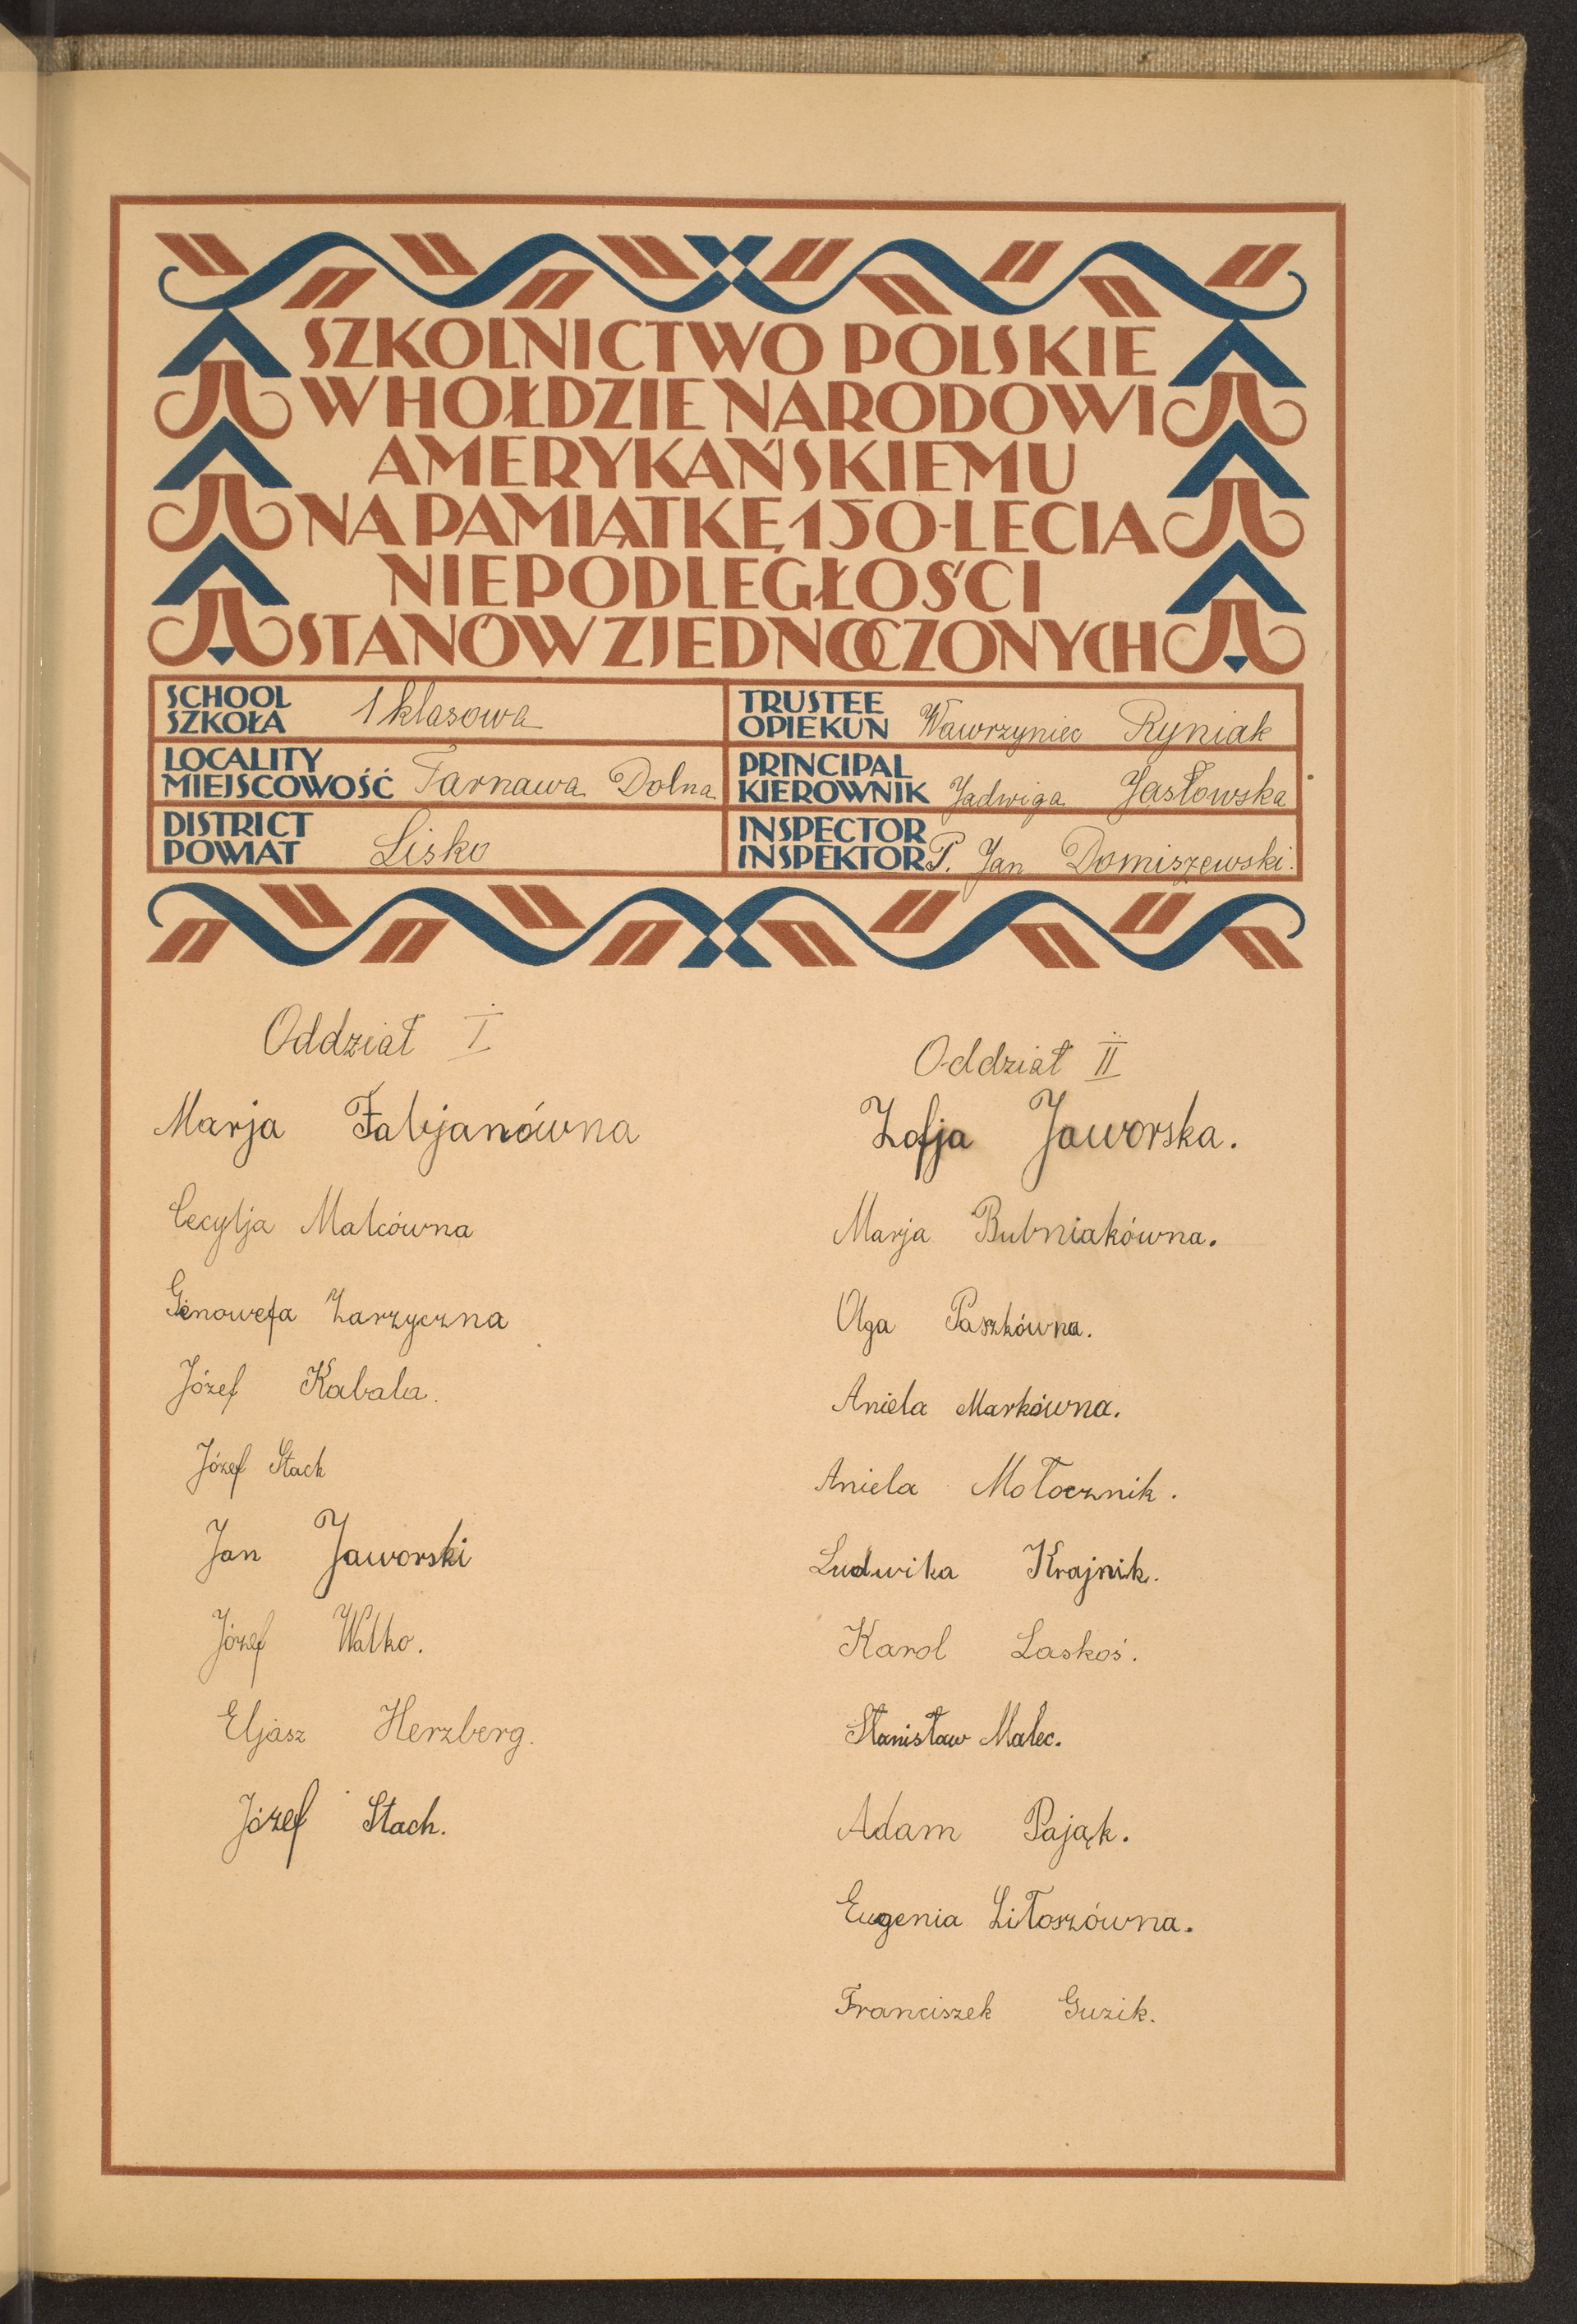 SZKOLNICTWO POLSKIE
W HOŁDZIE NARODOWI
AMERYKAŃSKIEMU
NA PAMIĄTKĘ 150-LECIA
NIEPODLEGŁOŚCI
STANÓW ZJEDNOCZONYCH
SCHOOL
SZKOŁA 1 klasowa
LOCALITY
MIEJSCOWOŚĆ Tarnawa Dolna
DISTRICT
POWIAT Lisko
TRUSTEE
OPIEKUN Wawrzyniec Ryniak
PRINCIPAL
KIEROWNIK Jadwiga Jasłowska
INSPECTOR
INSPEKTOR P. Jan Domiszewski.
Oddział I
Marja Fabjanówna
Cecylja Malcówna
Genowefa Zarzyczna
Józef Kabala.
Józef Stach
Jan Jaworski
Józef Walko.
Eljasz Herzberg.
Józef Stach.
Oddział II
Zofja Jaworska.
Marja Bubniakówna.
Olga Paszkówna.
Aniela Markówna.
Aniela Mołocznik.
Ludwika Krajnik.
Karol Laskoś.
Stanisław Malec.
Adam Pająk.
Eugenia Litoszówna.
Franciszek Guzik.